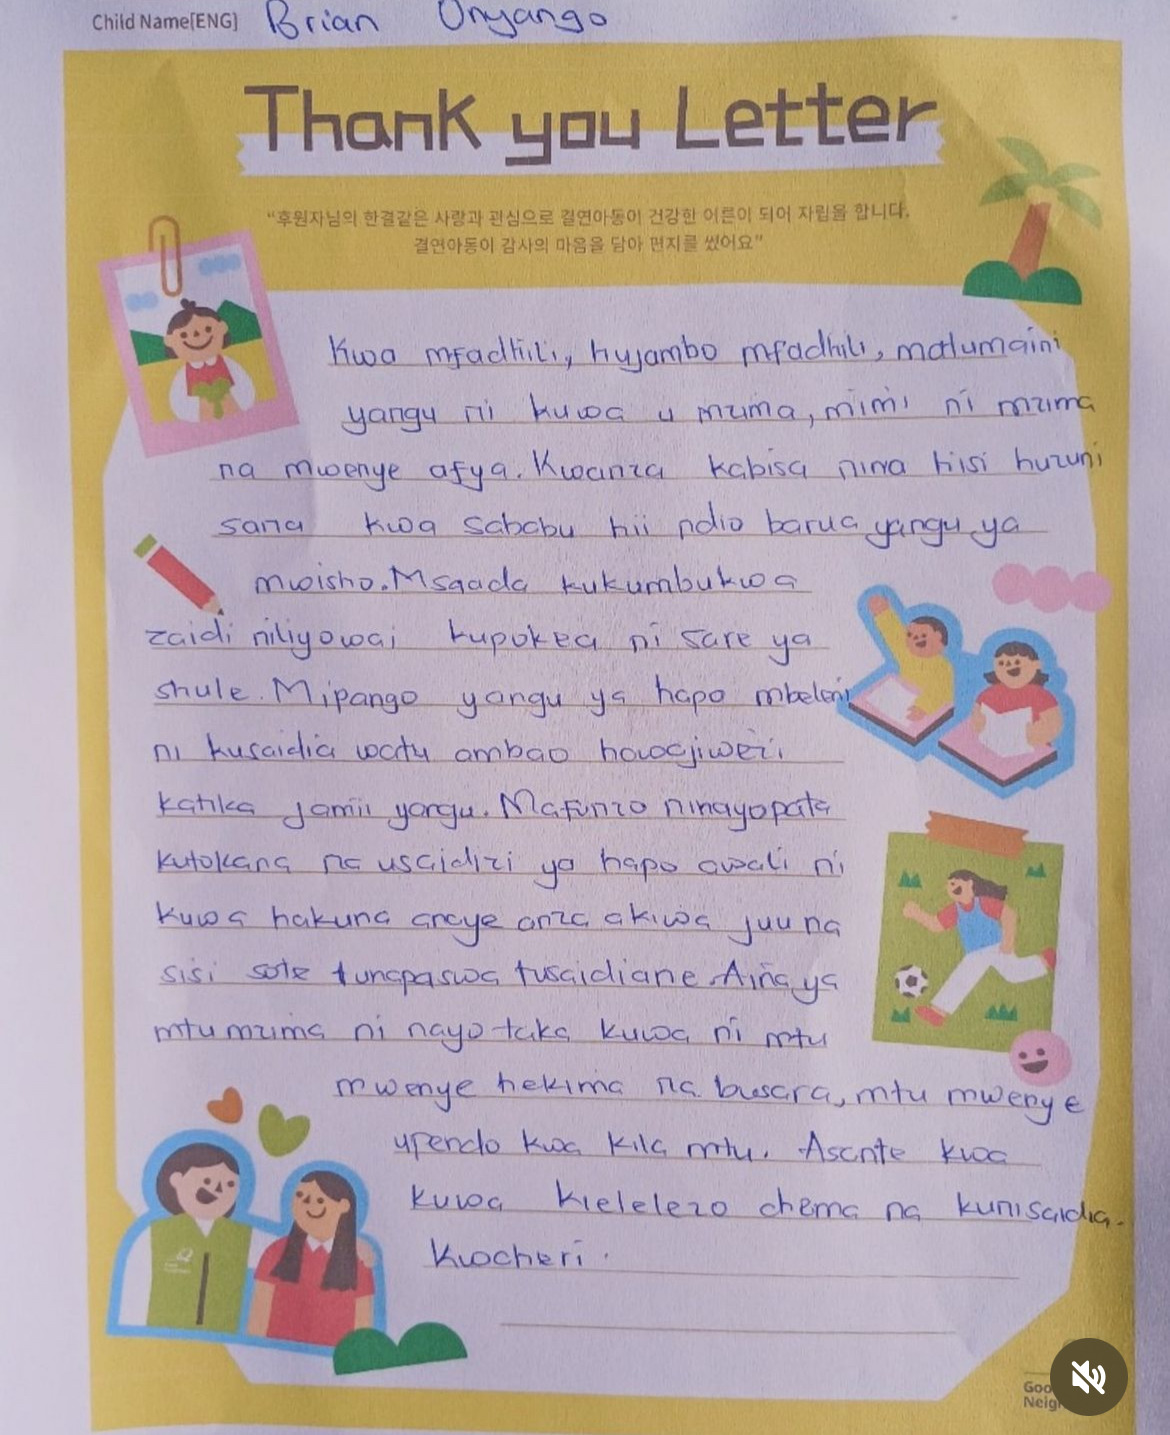 Child Name[ENG] Brian Onyango
Thank you Letter
“후원자님의 한결같은 사랑과 관심으로 결연아동이 건강한 어른이 되어 자립을 합니다.
결연아동이 감사의 마음을 담아 편지를 썼어요”
Kwa mfadhili, hujambo mfadhili, matumaini
yangu ni kuwa u mzima, mimi ni mzima
na mwenye afya. Kwanza kabisa nina hisi huzuni
sana kwa sababu hii ndio barua yangu ya
mwisho. Msaada kukumbukwa
zaidi niliyowai kupokea ni sare ya
shule. Mipango yangu ya hapo mbeleni
ni kusaidia watu ambao hawajiwezi
katika jamii yangu. Mafunzo ninayopata
kutokana na usaidizi ya hapo awali ni
kuwa hakuna anaye anza akiwa juu na
sisi sote tunapaswa tusaidiane. Aina ya
mtu mzima ni nayo taka kuwa ni mtu
mwenye hekima na busara, mtu mwenye
upendo kwa kila mtu. Asante kwa
kuwa kielelezo chema na kunisaidia.
Kwocheri.